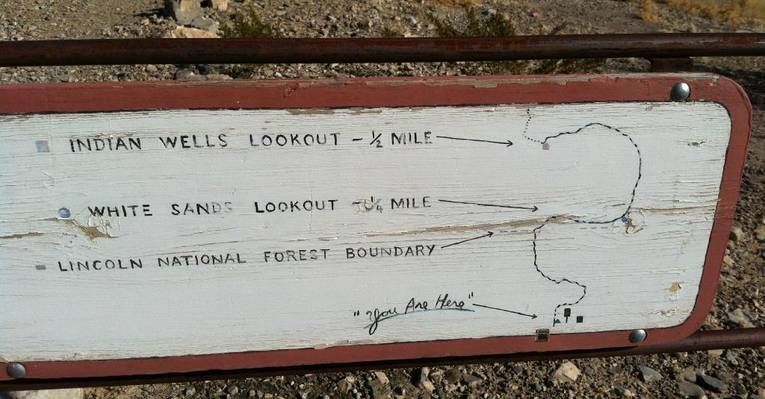 INDIAN WELLS LOOKOUT - ½ MILE
WHITE SANDS LOOKOUT - ¼ MILE
LINCOLN NATIONAL FOREST BOUNDARY
"You Are Here"